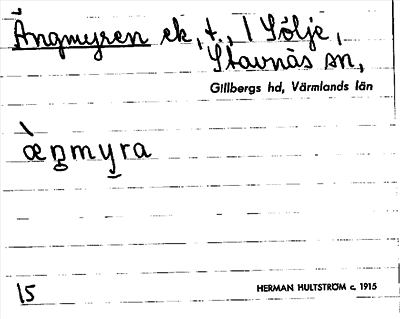 Ängmyren ek, t., 1 Sölje,
Stavnäs sn,
Gillbergs hd, Värmlands län
æ̀ŋmy̱ra
15
HERMAN HULTSTRÖM c. 1915